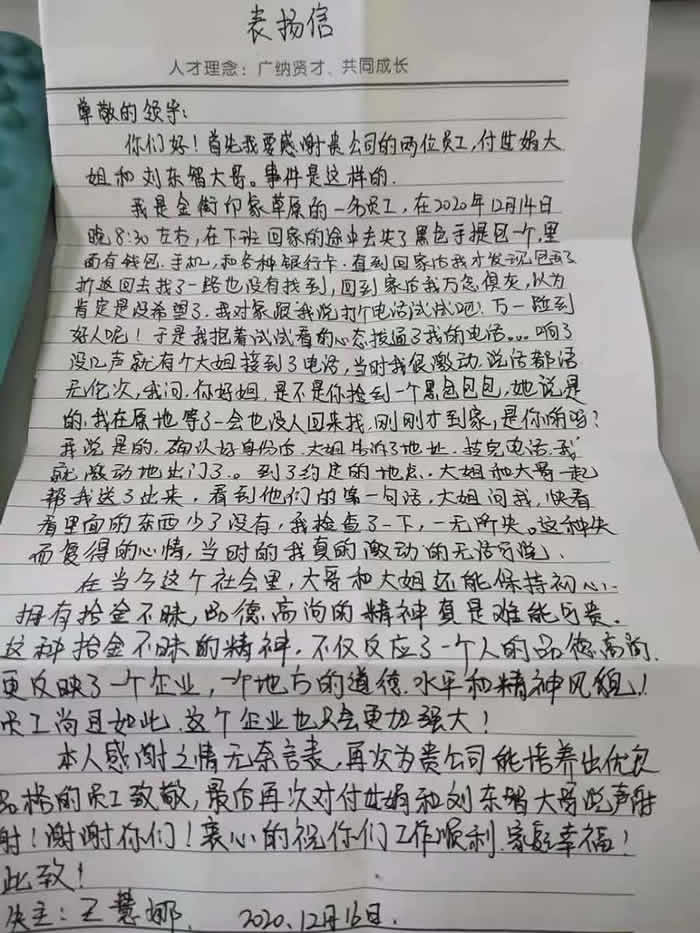 表扬信
人才理念：广纳贤才、共同成长
尊敬的领导：
你们好！首先我要感谢贵公司的两位员工，付世娟大
姐和刘东智大哥。事件是这样的.
我是金街印象草原的一名员工，在2020年12月14日
晚8:30左右，在下班回家的途中丢失了黑色手提包一个，里
面有钱包.手机，和各种银行卡.直到回家后我才发现包丢了
折返回去找了一路也没有找到，回到家后我万念俱灰，以为
肯定是没希望了.我对象跟我说打个电话试试吧！万一碰到
好人呢！于是我抱着试试看的心态拨通了我的电话....响了
没几声就有个大姐接到了电话，当时我很激动.说话都语
无伦次，我问.你好姐.是不是你捡到一个黑色包包，她说是
的.我在原地等了一会也没人回来找.刚刚才到家，是你的吗？
我说是的.确认好身份后.大姐告诉了地址.接完电话.我
就激动地出门了。到了约定的地点.大姐和大哥一起
帮我送了出来，看到他们的第一句话，大姐问我.快看
看里面的东西少了没有，我检查了一下，一无所失。这种失
而复得的心情，当时的我真的激动的无话可说！
在当今这个社会里，大哥和大姐还能保持初心.
拥有拾金不昧，品德高尚的精神真是难能可贵。
这种拾金不昧的精神.不仅反应了一个人的品德高尚.
更反映了一个企业，一个地方的道德.水平和精神风貌！
员工尚且如此.这个企业也只会更加强大！
本人感谢之情无奈言表，再次为贵公司能培养出优良
品格的员工致敬，最后再次对付世娟和刘东智大哥说声谢
谢！谢谢你们！衷心的祝你们工作顺利.家庭幸福！
此致！
失主：王慧娜. 2020.12月16日.